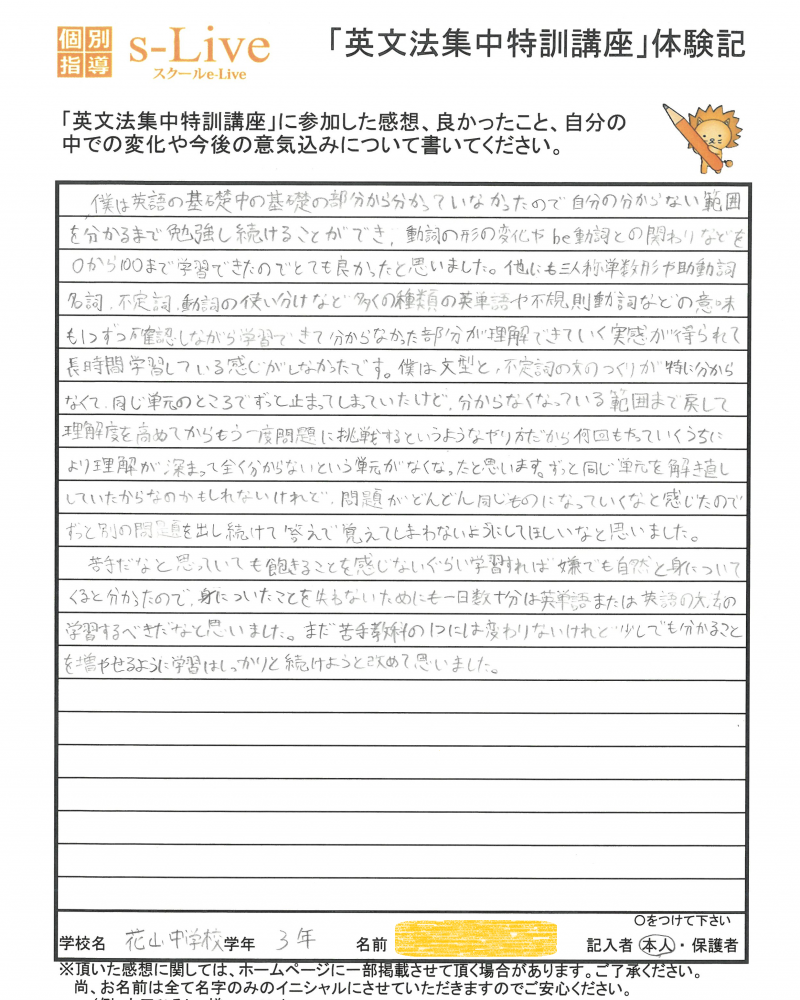 個別指導 s-Live
スクールe-Live
「英文法集中特訓講座」体験記
「英文法集中特訓講座」に参加した感想、良かったこと、自分の
中での変化や今後の意気込みについて書いてください。
僕は英語の基礎中の基礎の部分から分かっていなかったので自分の分からない範囲
を分かるまで勉強し続けることができ、動詞の形の変化やbe動詞との関わりなどを
0から100まで学習できたのでとても良かったと思いました。他にも三人称単数形や助動詞
名詞、不定詞、動詞の使い分けなど多くの種類の英単語や不規則動詞などの意味
も1つずつ確認しながら学習できて分からなかった部分が理解できていく実感が得られて
長時間学習している感じがしなかったです。僕は文型と、不定詞の文のつくりが特に分から
なくて、同じ単元のところでずっと止まってしまっていたけど、分からなくなっている範囲まで戻して
理解度を高めてからもう一度問題に挑戦するというようなやり方だから何回もやっていくうちに
より理解が深まって全く分からないという単元がなくなったと思います。ずっと同じ単元を解き直し
していたからなのかもしれないけれど、問題がどんどん同じものになっていくなと感じたので
ずっと別の問題を出し続けて答えで覚えてしまわないようにしてほしいなと思いました。
苦手だなと思っていても飽きることを感じないぐらい学習すれば嫌でも自然と身について
くると分かったので、身についたことを失わないためにも一日数十分は英単語または英語の文法の
学習するべきだなと思いました。まだ苦手教科の1つには変わりないけれど少しでも分かること
を増やせるように学習はしっかりと続けようと改めて思いました。
〇をつけて下さい
学校名 花山中学校 学年 3年 名前 記入者 本人・保護者
※頂いた感想に関しては、ホームページに一部掲載させて頂く場合があります。ご了承ください。
尚、お名前は全て名字のみのイニシャルにさせていただきますのでご安心ください。